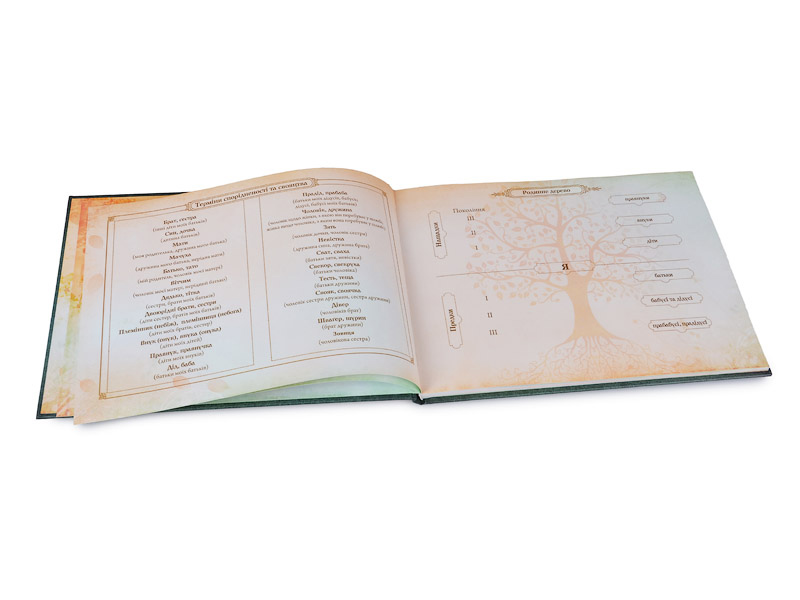 Терміни спорідненості та свояцтва
Брат, сестра
(інші діти моїх батьків)
Син, дочка
(дитина батьків)
Мати
(моя родителька, дружина мого батька)
Мачуха
(дружина мого батька, нерідна мати)
Батько, тато
(мій родитель, чоловік моєї матері)
Вітчим
(чоловік моєї матері, нерідний батько)
Дядько, тітка
(сестри, брати моїх батьків)
Двоюрідні брати, сестри
(діти сестер, братів моїх батьків)
Племінник (небіж), племінниця (небога)
(діти моїх братів, сестер)
Внук (онук), внука (онука)
(діти моїх дітей)
Правнук, правнучка
(діти моїх внуків)
Дід, баба
(батьки моїх батьків)
Прадід, прабаба
(батьки моїх дідусів, бабусь)
дідусі, бабусі моїх батьків)
Чоловік, дружина
Зять
(чоловік дочки, чоловік сестри)
Невістка
(дружина сина, дружина брата)
Сват, сваха
(батьки зятя, невістки)
Свекор, свекруха
(батьки чоловіка)
Тесть, теща
(батьки дружини)
Свояк, своячка
(чоловік сестри дружини, сестра дружини)
Дівер
(чоловіків брат)
Швагер, шурин
(брат дружини)
Зовиця
(чоловікова сестра)
Родинне дерево
Нащадки
Покоління
III
правнуки
II
внуки
I
діти
Я
Предки
батьки
I
бабусі та дідусі
II
прабабусі, прадідусі
III